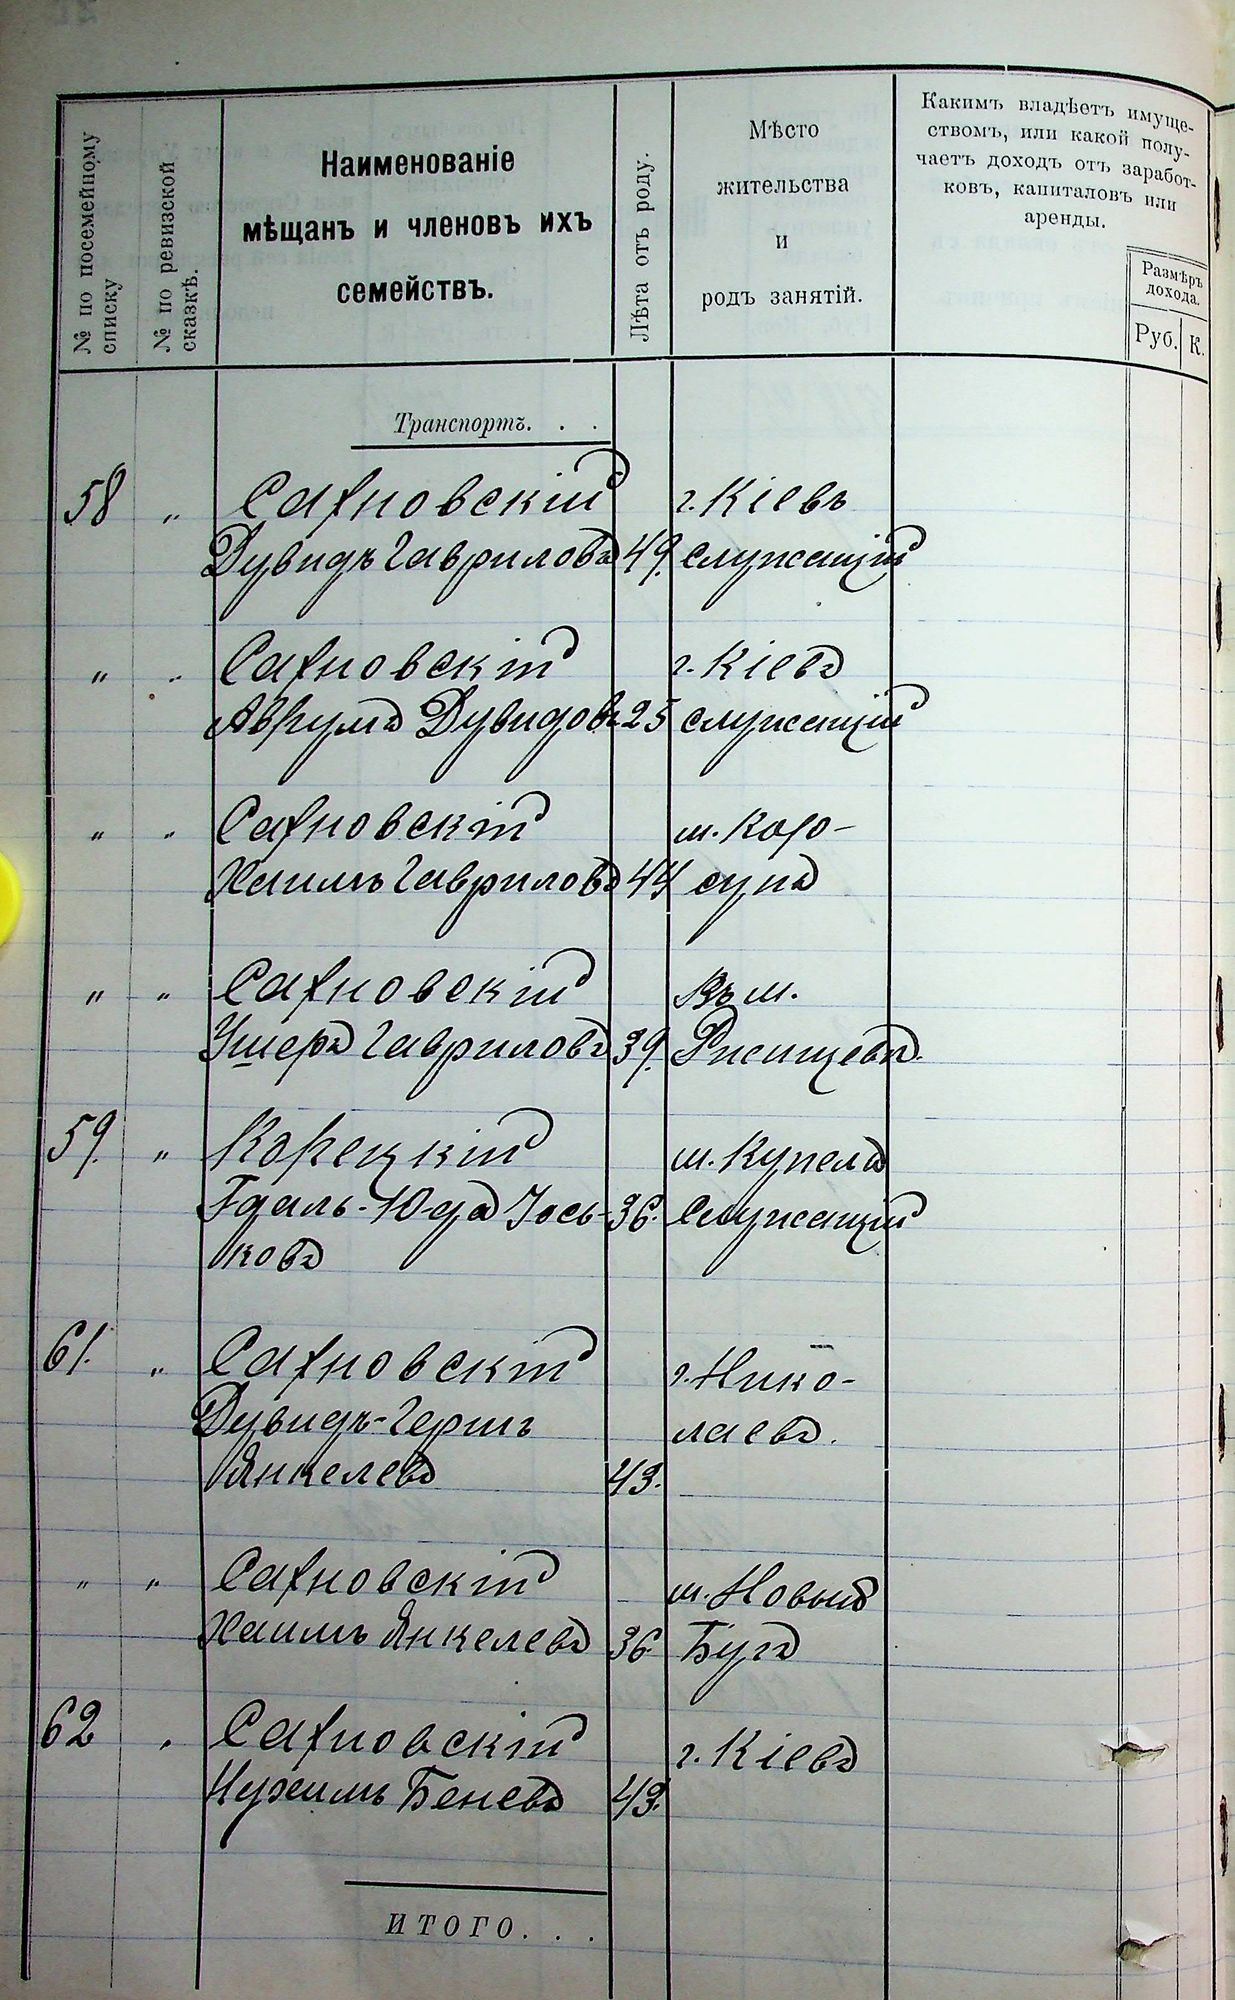 № по посемейному списку
№ по ревизской сказкѣ.
Наименованіе
мѣщанъ и членовъ ихъ
семействъ.
Лѣта отъ роду.
Мѣсто
жительства
и
родъ занятій.
Какимъ владѣетъ имуще-
ствомъ, или какой полу-
чаетъ доходъ отъ заработ-
ковъ, капиталовъ или
аренды.
Размѣръ
дохода.
Руб. К.
Транспортъ. . .
58 " Сахновскій г. Кіевъ
Дувидъ Гавриловъ 49. служащій
" " Сахновскій г. Кіевъ
Аврумъ Дувидовъ 25 служащій
" " Сахновскій м. Кор-
Хаимъ Гавриловъ 44 сунъ
" " Сахновскій Въ м.
Ушеръ Гавриловъ 39. Ржищевъ.
59. " Корецкій м. Купель
Гдаль-Юда Іось- 36. Служащій
ковъ
61. " Сахновскій г. Нико-
Дувидъ-Герш лаевъ.
Янкелевъ 43.
" " Сахновскій м. Новый
Хаимъ Янкелевъ 36 Бугъ
62 " Сахновскій г. Кіевъ
Нухимъ Беневъ 43.
ИТОГО. . .